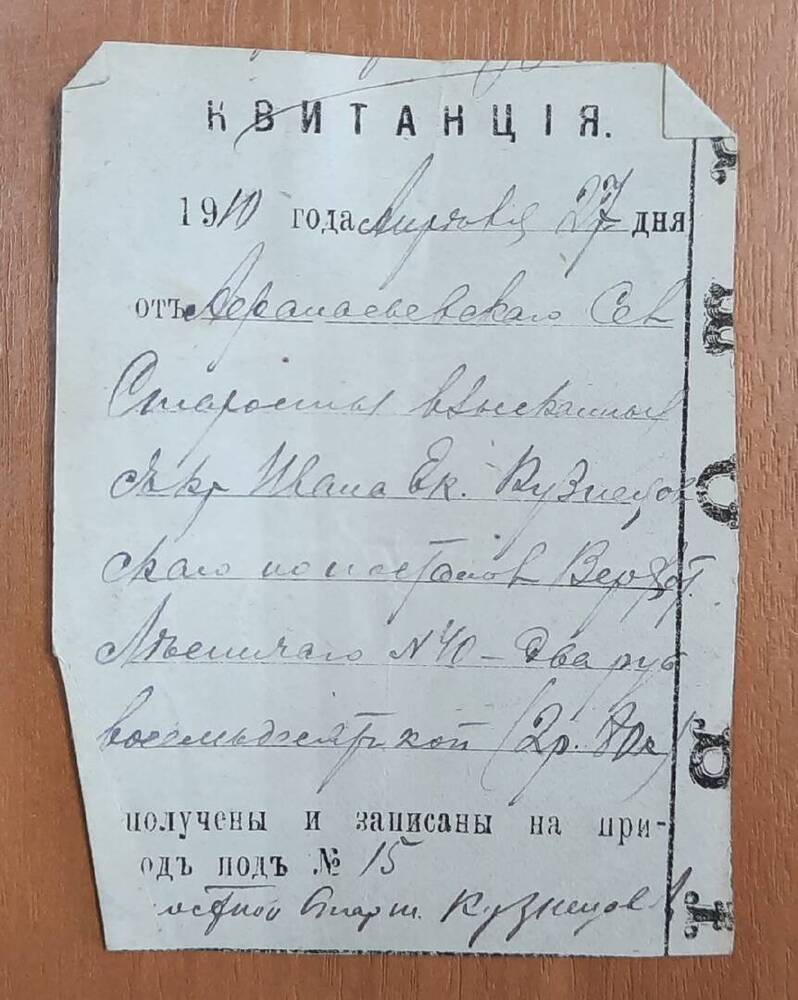 КВИТАНЦІЯ.
1910 года Апреля 27 дня
отъ Афанасьевскаго Сел
Старосты взысканные
съ кр Ивана Ек. Кузнецов
скаго по постанов Верхот.
Лѣсничаго №40 - два руб
восемьдесятъ коп (2р. 80к)
получены и записаны на при-
одъ подъ № 15
остной Старш. Кузнецов